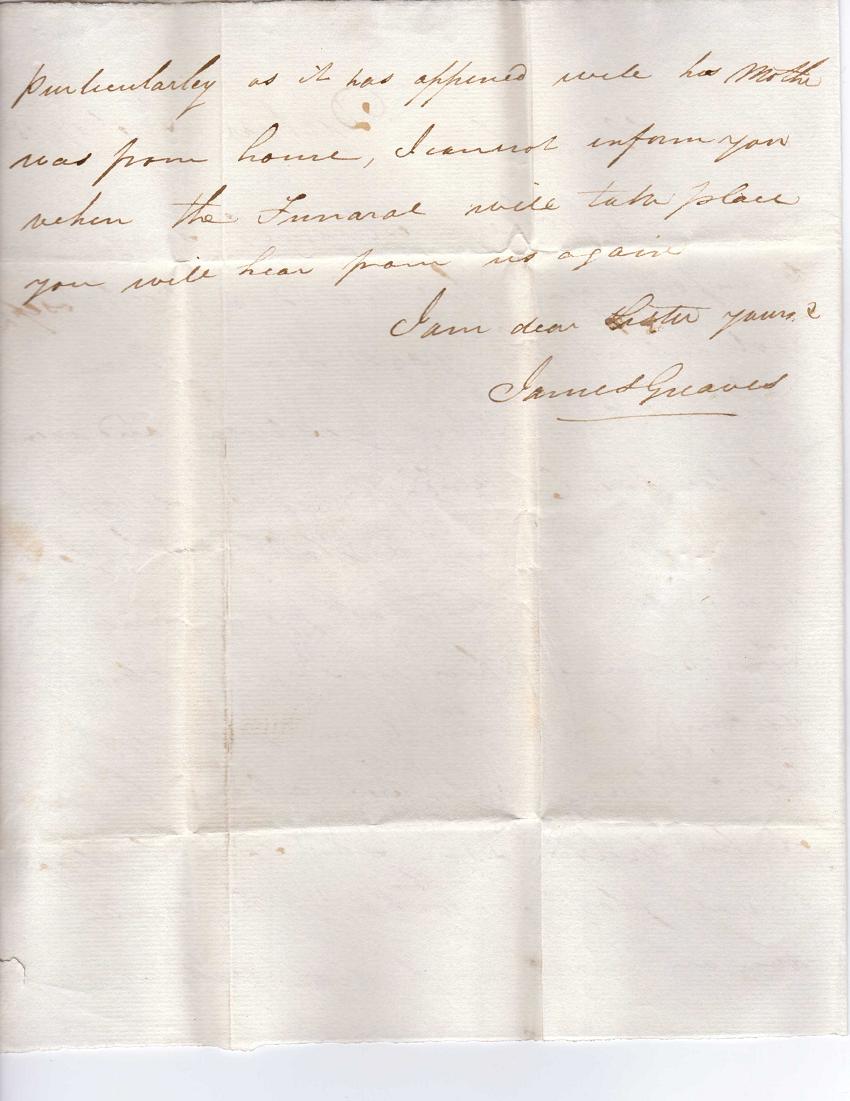 Purticularley as it has appened wile has Mothe
was from home, I cannot inform you
when the Funaral will take place
you will hear from us again
I am dear Sister yours &
James Greaves